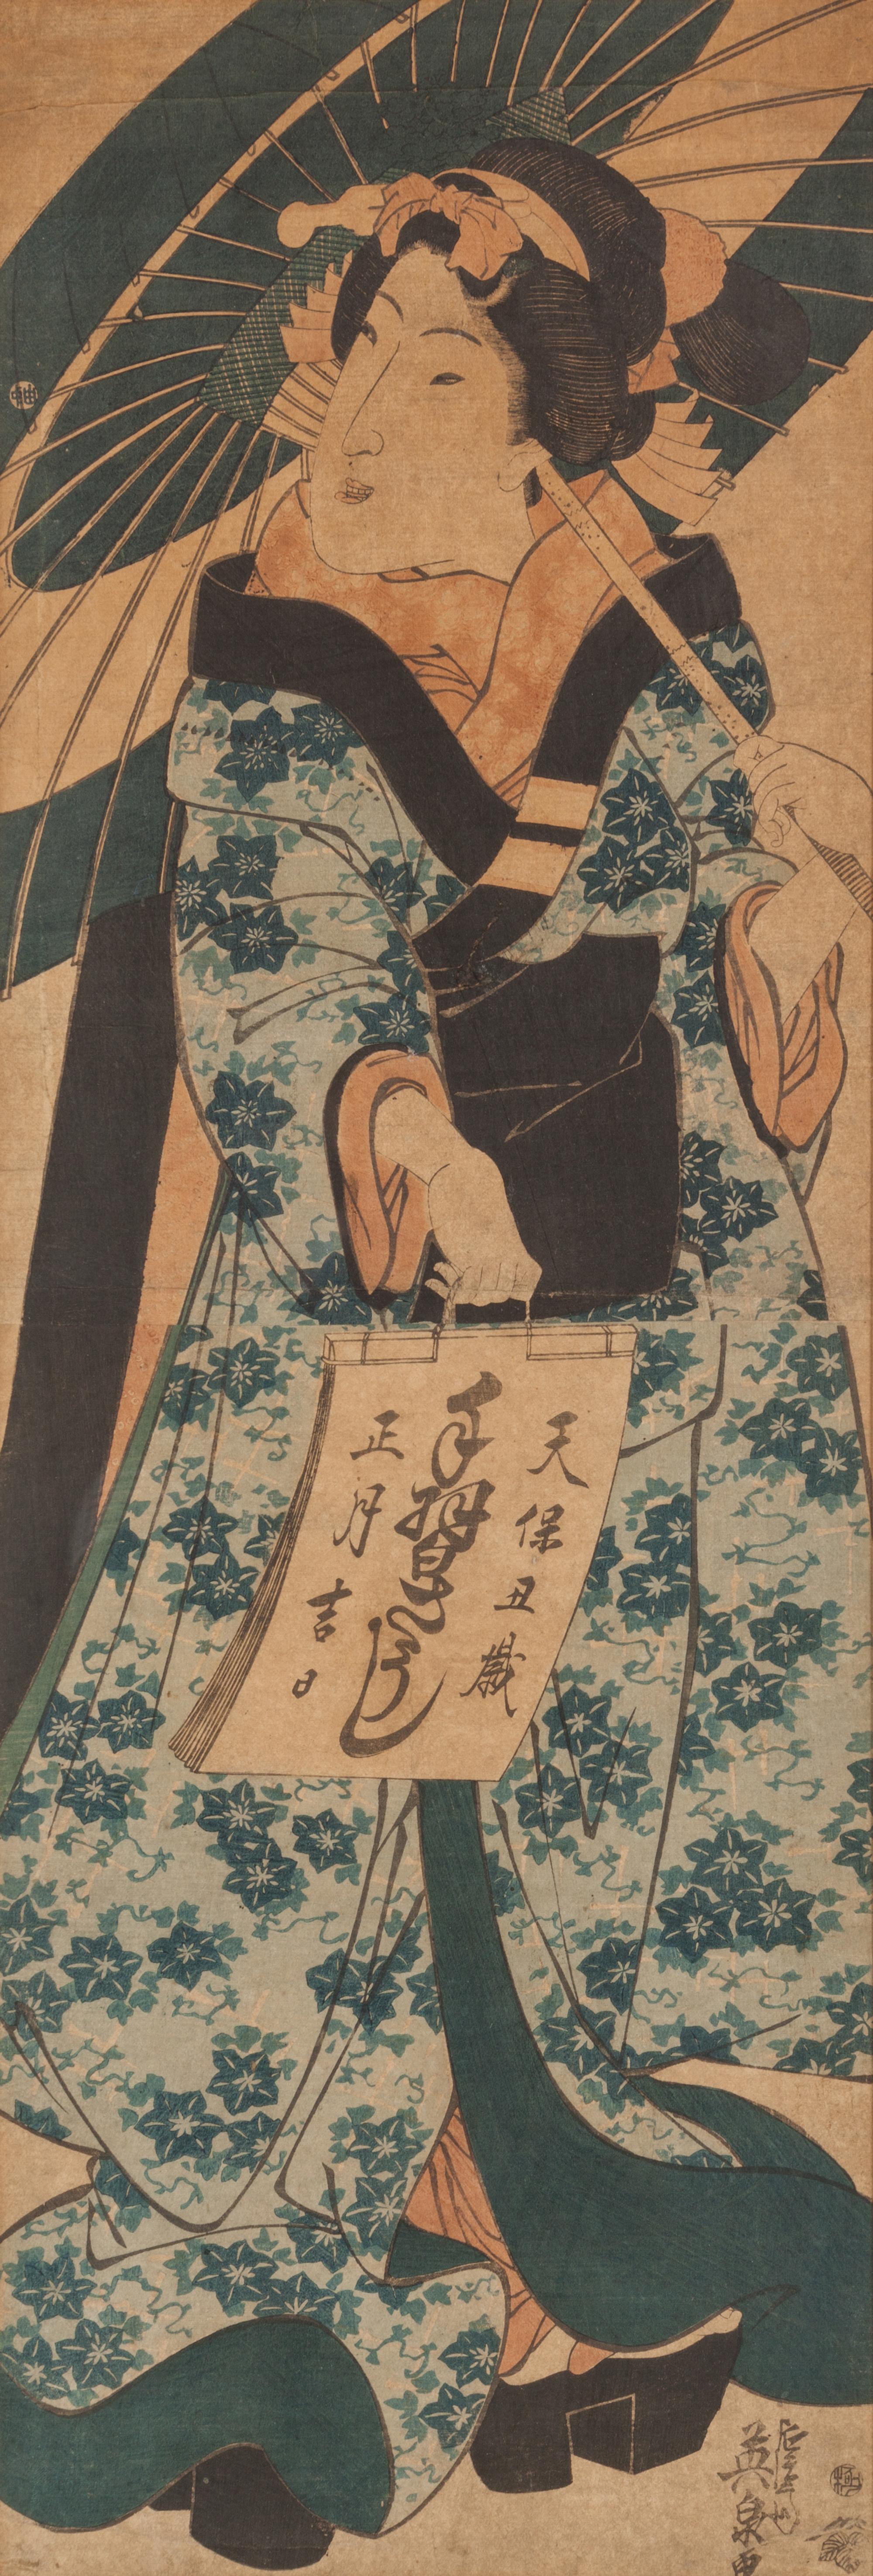 天保丑歳
手習さうし
正月吉日
英泉画
極